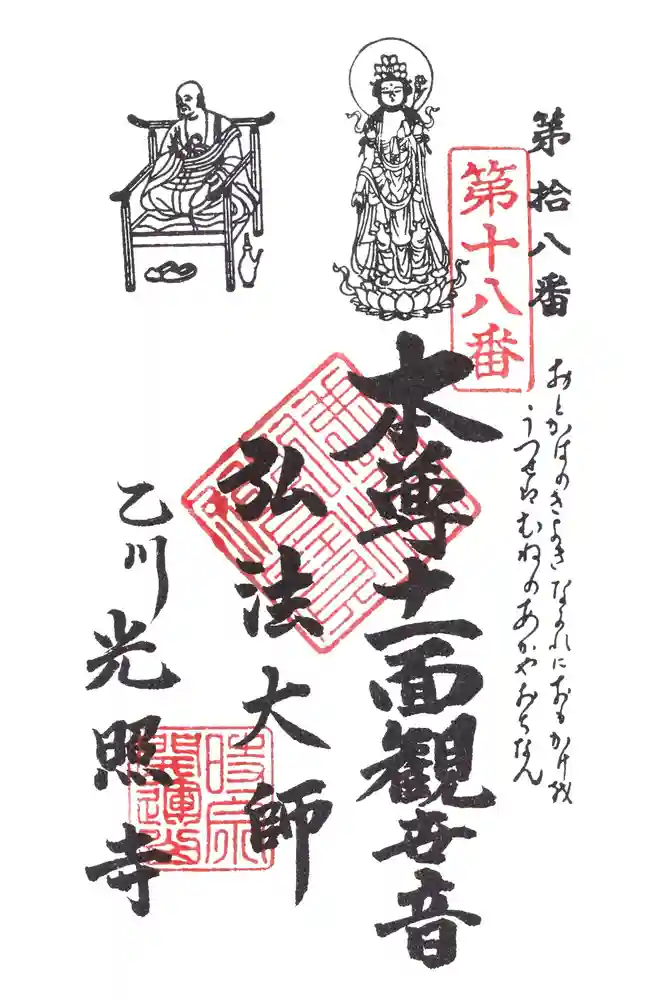 第拾八番
第十八番
おとかはのきよきながれにおもかげを
うつせはむねのあかやおちなん
本尊十一面観世音
弘法大師
乙川光照寺
時宗
開運山